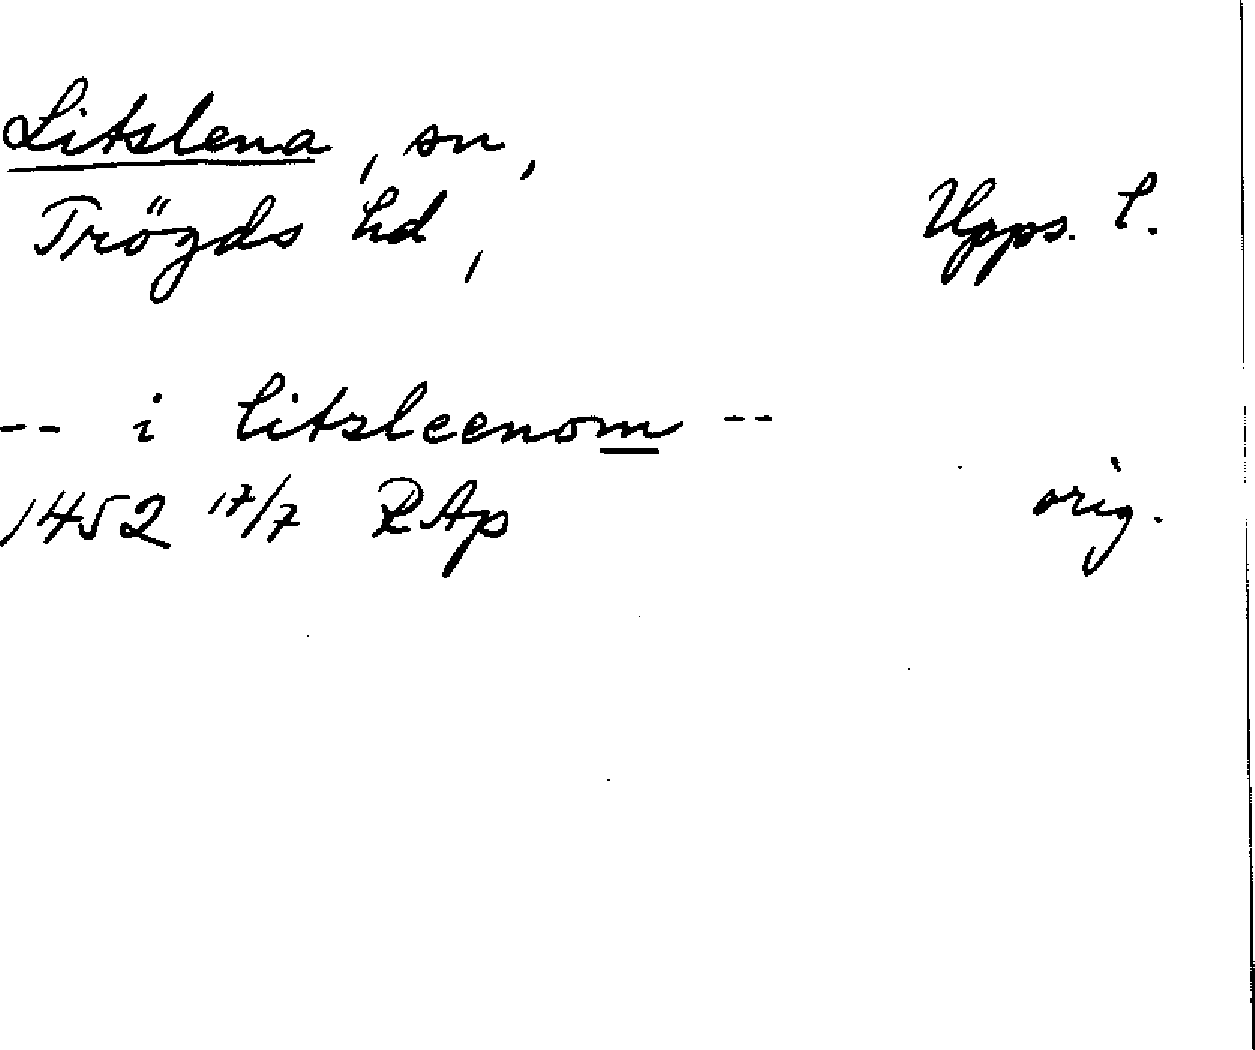 Litslena, sn,
Trögds hd, Upps. l.
-- i litzleenom --
1452 17/7 RAp orig.